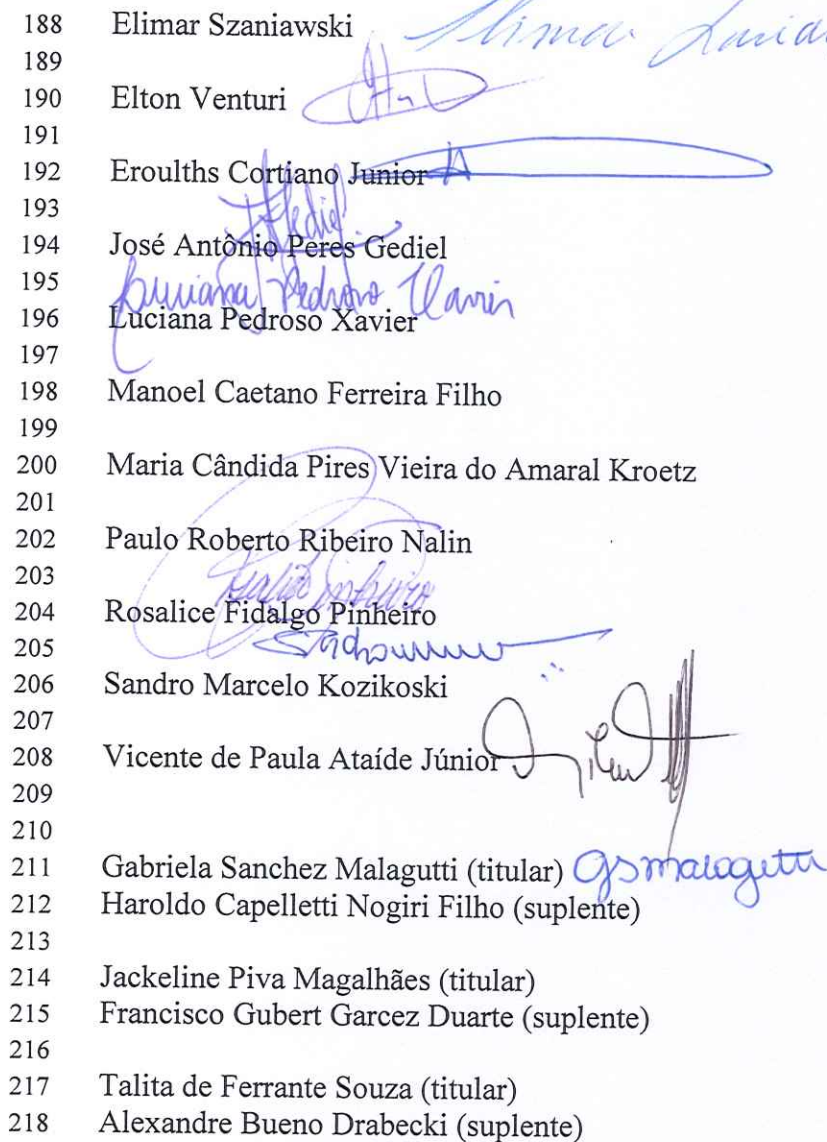 188 Elimar Szaniawski
189
190 Elton Venturi
191
192 Eroulths Cortiano Junior
193
Gediel
194 José Antônio Peres Gediel
195
Luciana Pedroso Xavier
196 Luciana Pedroso Xavier
197
198 Manoel Caetano Ferreira Filho
199
200 Maria Cândida Pires Vieira do Amaral Kroetz
201
202 Paulo Roberto Ribeiro Nalin
203
204 Rosalice Fidalgo Pinheiro
205
206 Sandro Marcelo Kozikoski
207
208 Vicente de Paula Ataíde Júnior
209
210
211 Gabriela Sanchez Malagutti (titular) GSmalagutti
212 Haroldo Capelletti Nogiri Filho (suplente)
213
214 Jackeline Piva Magalhães (titular)
215 Francisco Gubert Garcez Duarte (suplente)
216
217 Talita de Ferrante Souza (titular)
218 Alexandre Bueno Drabecki (suplente)